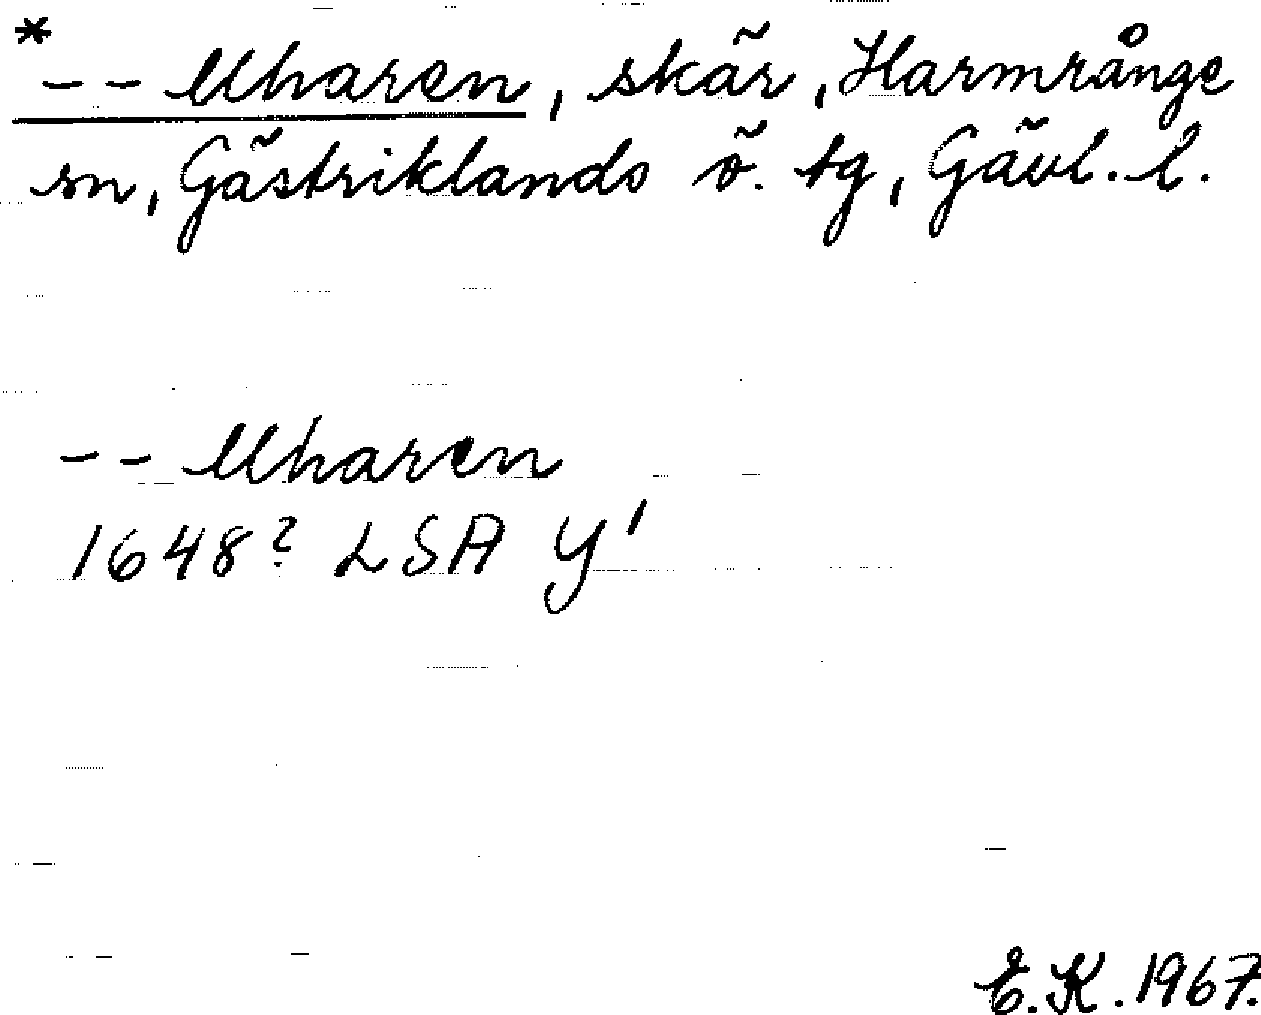 *
-- Uharen, skär, Harmrånge
sn, Gästriklands ö. tg, Gävl. l.
-- Uharen
1648? LSA Y'
E.K. 1967.